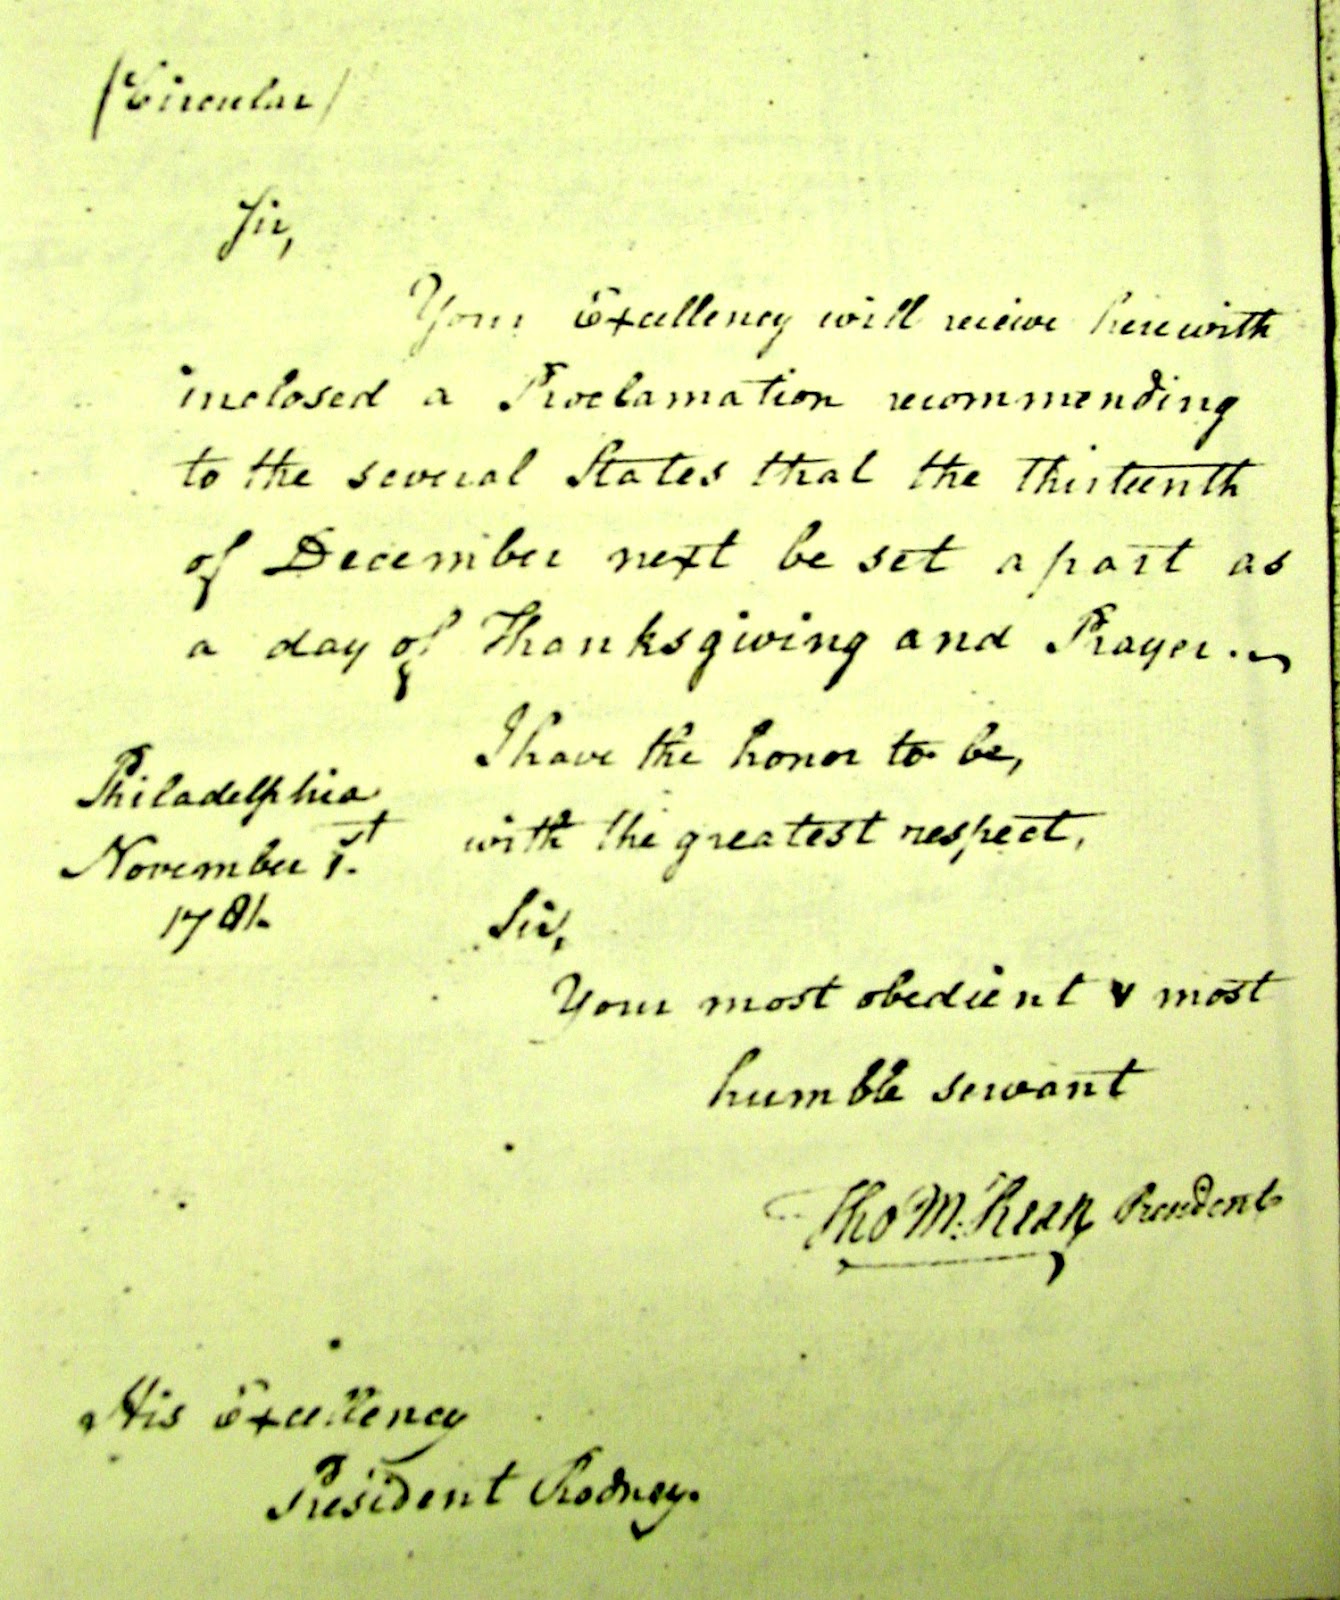 (Circular)
Sir,
Your Excellency will receive herewith
inclosed a Proclamation recommending
to the several States that the thirteenth
of December next be set apart as
a day of Thanksgiving and Prayer.
I have the honor to be,
with the greatest respect,
Sir,
Your most obedient & most
humble servant
Philadelphia
November 1st.
1781.
Tho M:Kean President
His Excellency
President Rodney.